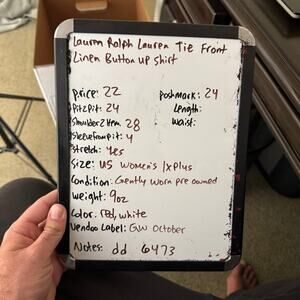 Lauren Ralph Lauren Tie Front
Linen Button up Shirt
Price: 22
Poshmark: 24
Pit2pit: 24
Length:
Shoulder2Hem: 28
Waist:
Sleevefrompit: 4
Stretch: Yes
Size: US Women's 1x Plus
Condition: Gently worn pre owned
Weight: 9oz
Color: red, white
Vendoo Label: GW October
Notes: dd 6473